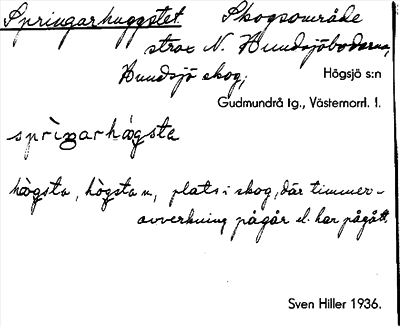 Springarhuggstet Skogsområde
strax N. Hundsjöbodarna,
Hundsjö skog, Högsjö s:n
Gudmundrå tg., Västernorrl. l.
sprìngarhögsta
högsta, högsta n, plats i skog, där timmer-
avverkning pågår el. har pågått.
Sven Hiller 1936.